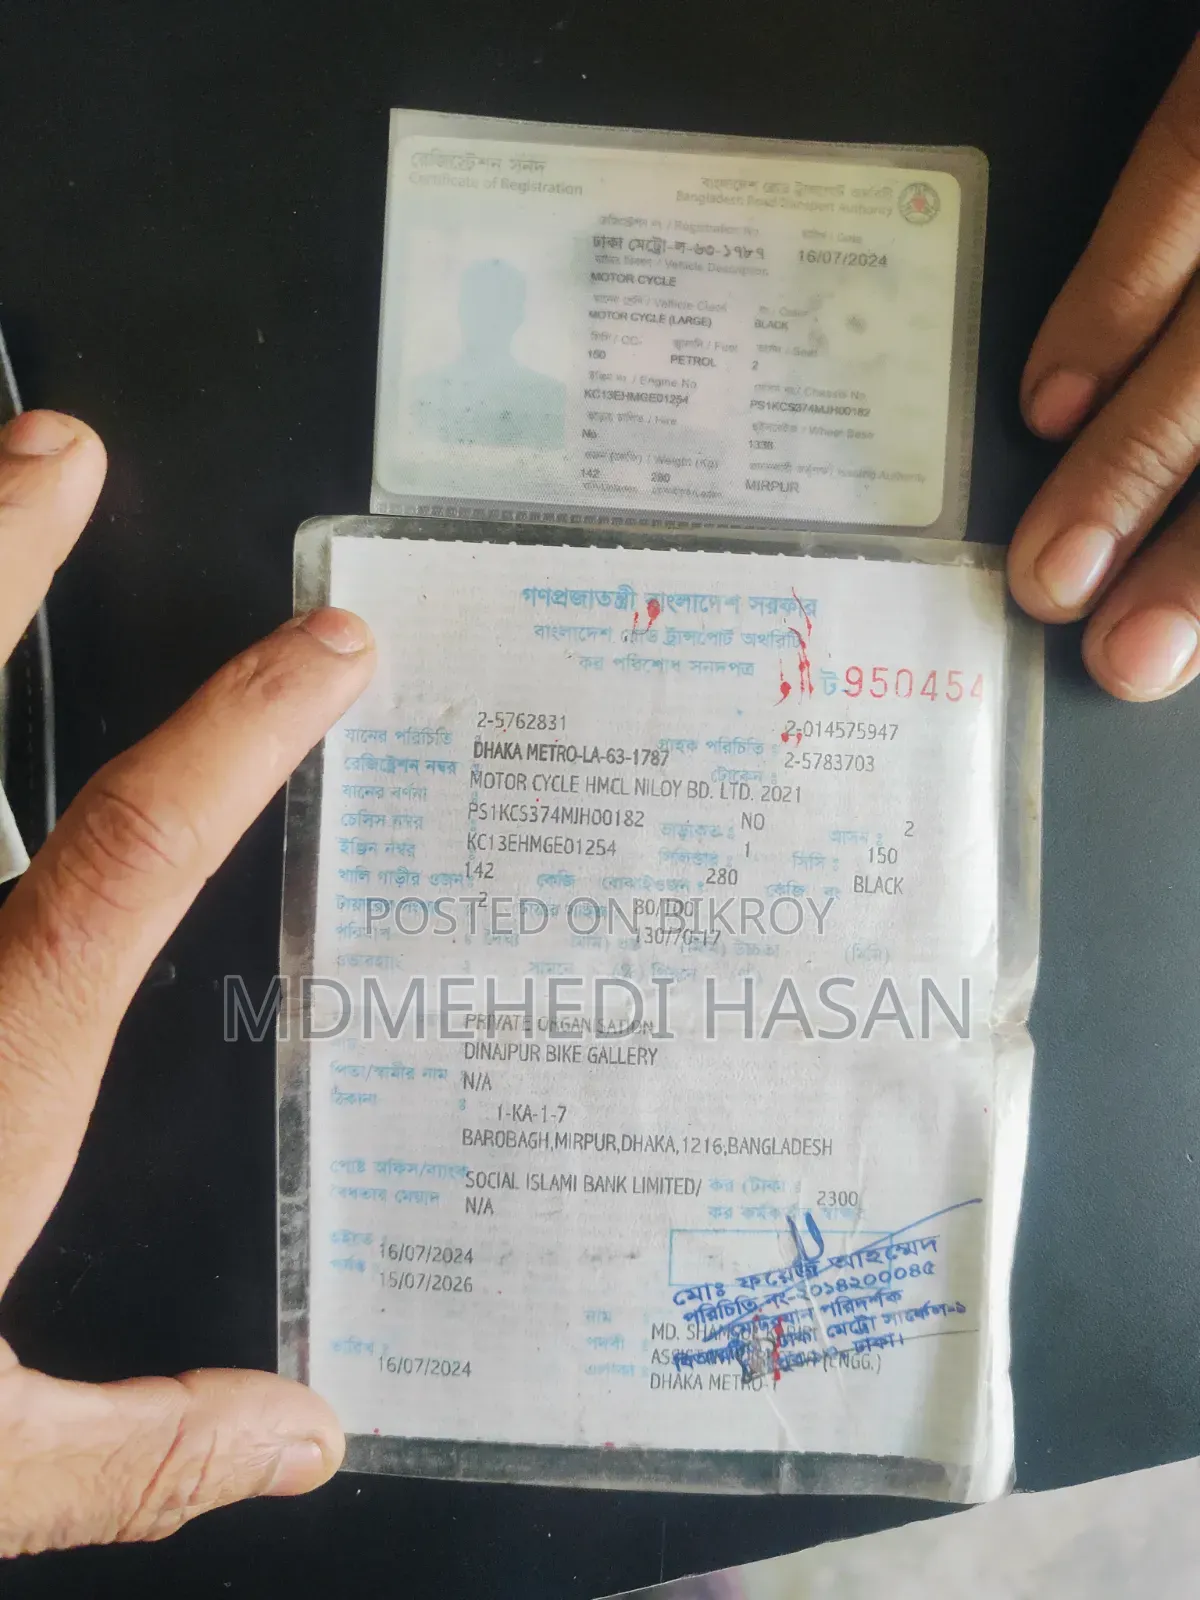 রেজিস্ট্রেশন সনদ
Certificate of Registration
বাংলাদেশ রোড ট্রান্সপোর্ট অথরিটি
Bangladesh Road Transport Authority
রেজিস্ট্রেশন নং / Registration No
ঢাকা মেট্রো-ল-৬৩-১৭৮৭
16/07/2024
Vehicle Description
MOTOR CYCLE
Vehicle Class
MOTOR CYCLE (LARGE)
BLACK
সিসি / CC
জ্বালানি / Fuel
150
PETROL
2
ইঞ্জিন নং / Engine No
Chassis No
KC13EHMGE01254
PS1KCS374MJH00182
Hire
হুইলবেইজ / Wheel Base
No
1338
ওজন (কেজি) / Weight (Kg)
Issuing Authority
142 280
MIRPUR
গণপ্রজাতন্ত্রী বাংলাদেশ সরকার
বাংলাদেশ রোড ট্রান্সপোর্ট অথরিটি
কর পরিশোধ সনদপত্র
ট-950454
2-5762831
2-014575947
যানের পরিচিতি :
গ্রাহক পরিচিতি :
রেজিস্ট্রেশন নম্বর : DHAKA METRO-LA-63-1787
টোকেন : 2-5783703
যানের বর্ণনা : MOTOR CYCLE HMCL NILOY BD. LTD. 2021
চেসিস নম্বর : PS1KCS374MJH00182
ভাড়াকৃত : NO
আসন : 2
ইঞ্জিন নম্বর : KC13EHMGE01254
সিলিন্ডার : 1
সিসি : 150
খালি গাড়ীর ওজন : 142 কেজি বোঝাইওজন : 280 কেজি রং BLACK
টায়ারের সংখ্যা : 2 টায়ার সাইজ 80/100
POSTED ON BIKROY
130/70-17
MDMEHEDI HASAN
PRIVATE ORGANISATION
DINAJPUR BIKE GALLERY
পিতা/স্বামীর নাম : N/A
ঠিকানা :
1-KA-1-7
BAROBAGH,MIRPUR,DHAKA,1216,BANGLADESH
পোষ্ট অফিস/ব্যাংক SOCIAL ISLAMI BANK LIMITED/
কর (টাকা) : 2300
বৈধতার মেয়াদ N/A
হইতে : 16/07/2024
পর্যন্ত 15/07/2026
মোঃ ফয়েজ আহম্মেদ
পরিচিতি নং-২০১৪২০০০৪৫
মোটরযান পরিদর্শক
ঢাকা মেট্রো সার্কেল-১
ঢাকা।
নাম
পদবী
এলাকা
(ENGG.)
DHAKA METRO-1
তারিখ : 16/07/2024